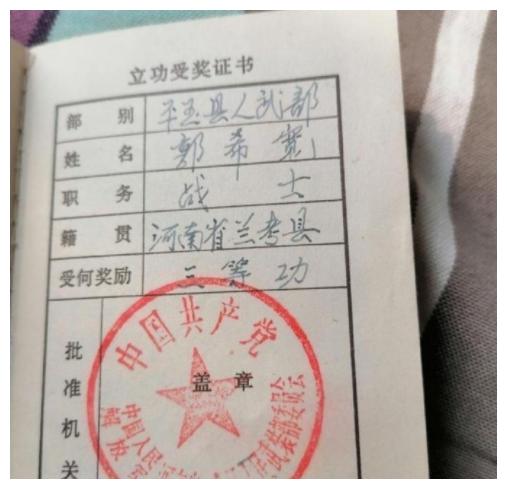 立功受奖证书
部别 平玉县人武部
姓名 郭希宽
职务 战士
籍贯 河南省兰考县
受何奖励 三等功
批准机关
盖章
中国共产党
中国人民解放军